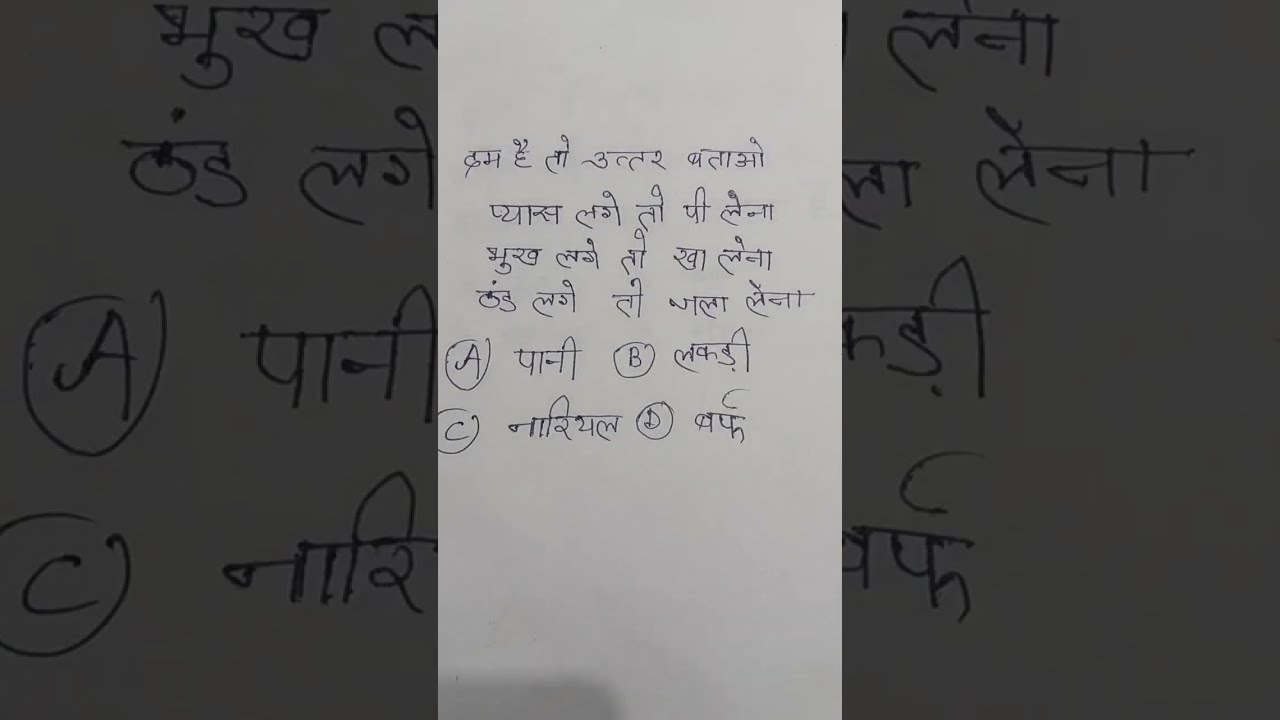 दम है तो उत्तर बताओ
प्यास लगे तो पी लेना
भुख लगे तो खा लेना
ठंड लगे तो जला लेना
(A) पानी (B) लकड़ी
(C) नारियल (D) बर्फ